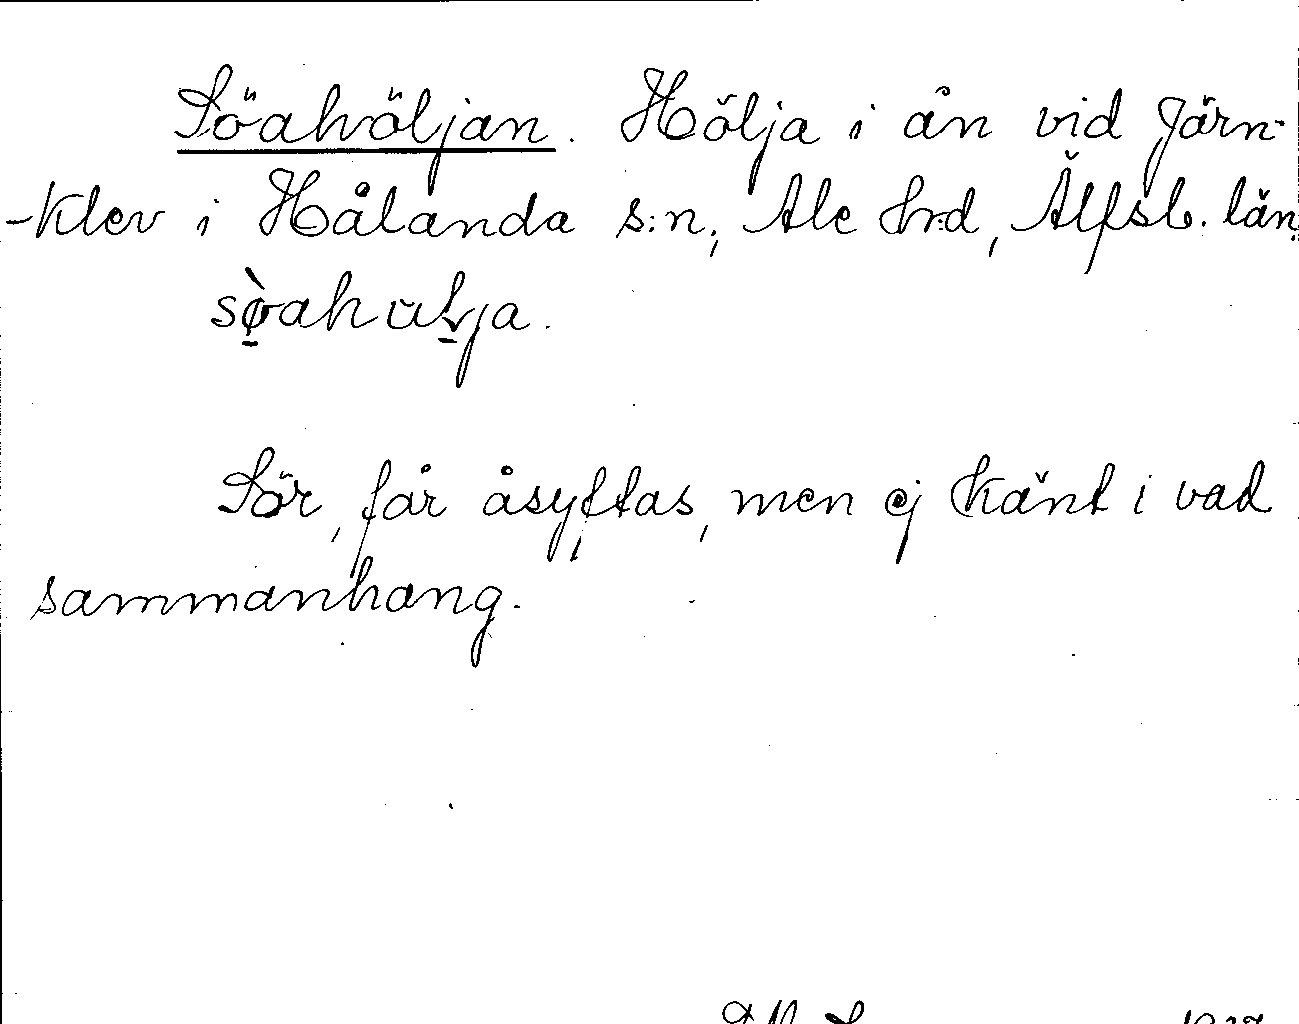 Söahöljan. Hölja i ån vid Järn-
-klev i Hålanda s:n, Ale hrd, Älfsb. län.
sø̀ahulja.
Sör, får åsyftas, men ej känt i vad
sammanhang.